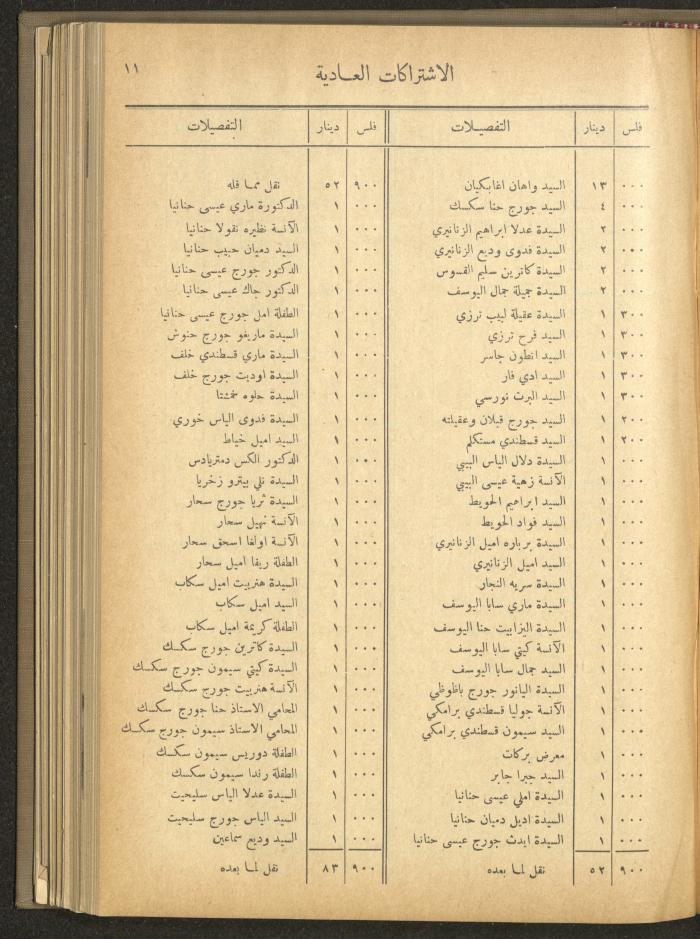 الاشتراكات العادية
١١
فلس دينار التفصيلات
٠٠٠ ١٣ السيد واهان اغابكيان
٠٠٠ ٤ السيد جورج حنا سكسك
٠٠٠ ٢ السيدة عدلا ابراهيم الزنانيري
٠٠٠ ٢ السيدة فدوى وديع الزنانيري
٠٠٠ ٢ السيدة كاترين سليم القسوس
٠٠٠ ٢ السيدة جميلة جمال اليوسف
٣٠٠ ١ السيدة عقيلة لبيب ترزي
٣٠٠ ١ السيد فرح ترزي
٣٠٠ ١ السيد انطون جاسر
٣٠٠ ١ السيد ادي فار
٣٠٠ ١ السيد البرت نورسي
٢٠٠ ١ السيد جورج قبلان وعقيلته
٢٠٠ ١ السيد قسطندي مستكلم
٠٠٠ ١ السيدة دلال الياس البيبي
٠٠٠ ١ الآنسة زهية عيسى البيبي
٠٠٠ ١ السيد ابراهيم الحويط
٠٠٠ ١ السيد فواد الحويط
٠٠٠ ١ السيدة برباره اميل الزنانيري
٠٠٠ ١ السيد اميل الزنانيري
٠٠٠ ١ السيدة سريه النجار
٠٠٠ ١ السيدة ماري سابا اليوسف
٠٠٠ ١ السيدة اليزابيت حنا اليوسف
٠٠٠ ١ الآنسة كيتي سابا اليوسف
٠٠٠ ١ السيد جمال سابا اليوسف
٠٠٠ ١ السيدة اليانور جورج باظوظي
٠٠٠ ١ الآنسة جوليا قسطندي برامكي
٠٠٠ ١ السيد سيمون قسطندي برامكي
٠٠٠ ١ معرض بركات
٠٠٠ ١ السيد جبرا جابر
٠٠٠ ١ السيدة املي عيسى حنانيا
٠٠٠ ١ السيدة اديل دميان حنانيا
٠٠٠ ١ السيدة ايدث جورج عيسى حنانيا
٩٠٠ ٥٢ نقل لما بعده
فلس دينار التفصيلات
٩٠٠ ٥٢ نقل مما قبله
٠٠٠ ١ الدكتورة ماري عيسى حنانيا
٠٠٠ ١ الآنسة نظيره نقولا حنانيا
٠٠٠ ١ السيد دميان حبيب حنانيا
٠٠٠ ١ الدكتور جورج عيسى حنانيا
٠٠٠ ١ الدكتور جاك عيسى حنانيا
٠٠٠ ١ الطفلة امل جورج عيسى حنانيا
٠٠٠ ١ السيدة ماريغو جورج حنوش
٠٠٠ ١ السيدة ماري قسطندي خلف
٠٠٠ ١ السيدة اوديت جورج خلف
٠٠٠ ١ السيدة حلوه
٠٠٠ ١ السيدة فدوى الياس خوري
٠٠٠ ١ السيد اميل خياط
٠٠٠ ١ الدكتور الكس دمتريادس
٠٠٠ ١ السيدة نلي بيترو زخريا
٠٠٠ ١ السيدة ثريا جورج سحار
٠٠٠ ١ الآنسة نهيل سحار
٠٠٠ ١ الآنسة اولغا اسحق سحار
٠٠٠ ١ الطفلة ريفا اميل سحار
٠٠٠ ١ السيدة هنرييت اميل سكاب
٠٠٠ ١ السيد اميل سكاب
٠٠٠ ١ الطفلة كريمة اميل سكاب
٠٠٠ ١ السيدة كاترين جورج سكسك
٠٠٠ ١ السيدة كيتي سيمون جورج سكسك
٠٠٠ ١ الآنسة هنرييت جورج سكسك
٠٠٠ ١ المحامي الاستاذ حنا جورج سكسك
٠٠٠ ١ المحامي الاستاذ سيمون جورج سكسك
٠٠٠ ١ الطفلة دوريس سيمون سكسك
٠٠٠ ١ الطفلة رندا سيمون سكسك
٠٠٠ ١ السيدة عدلا الياس سليحيت
٠٠٠ ١ السيد الياس جورج سليحيت
٠٠٠ ١ السيد وديع سماعين
٩٠٠ ٨٣ نقل لما بعده